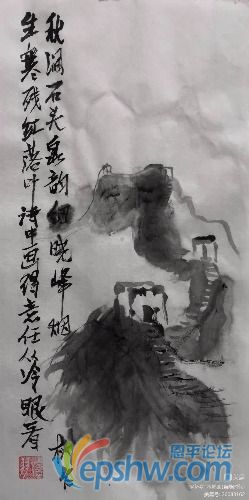 秋涧石头泉韵细晓峰烟树
生寒残红落叶诗中画得意任从冷眼看
恩平论坛
epshw.com